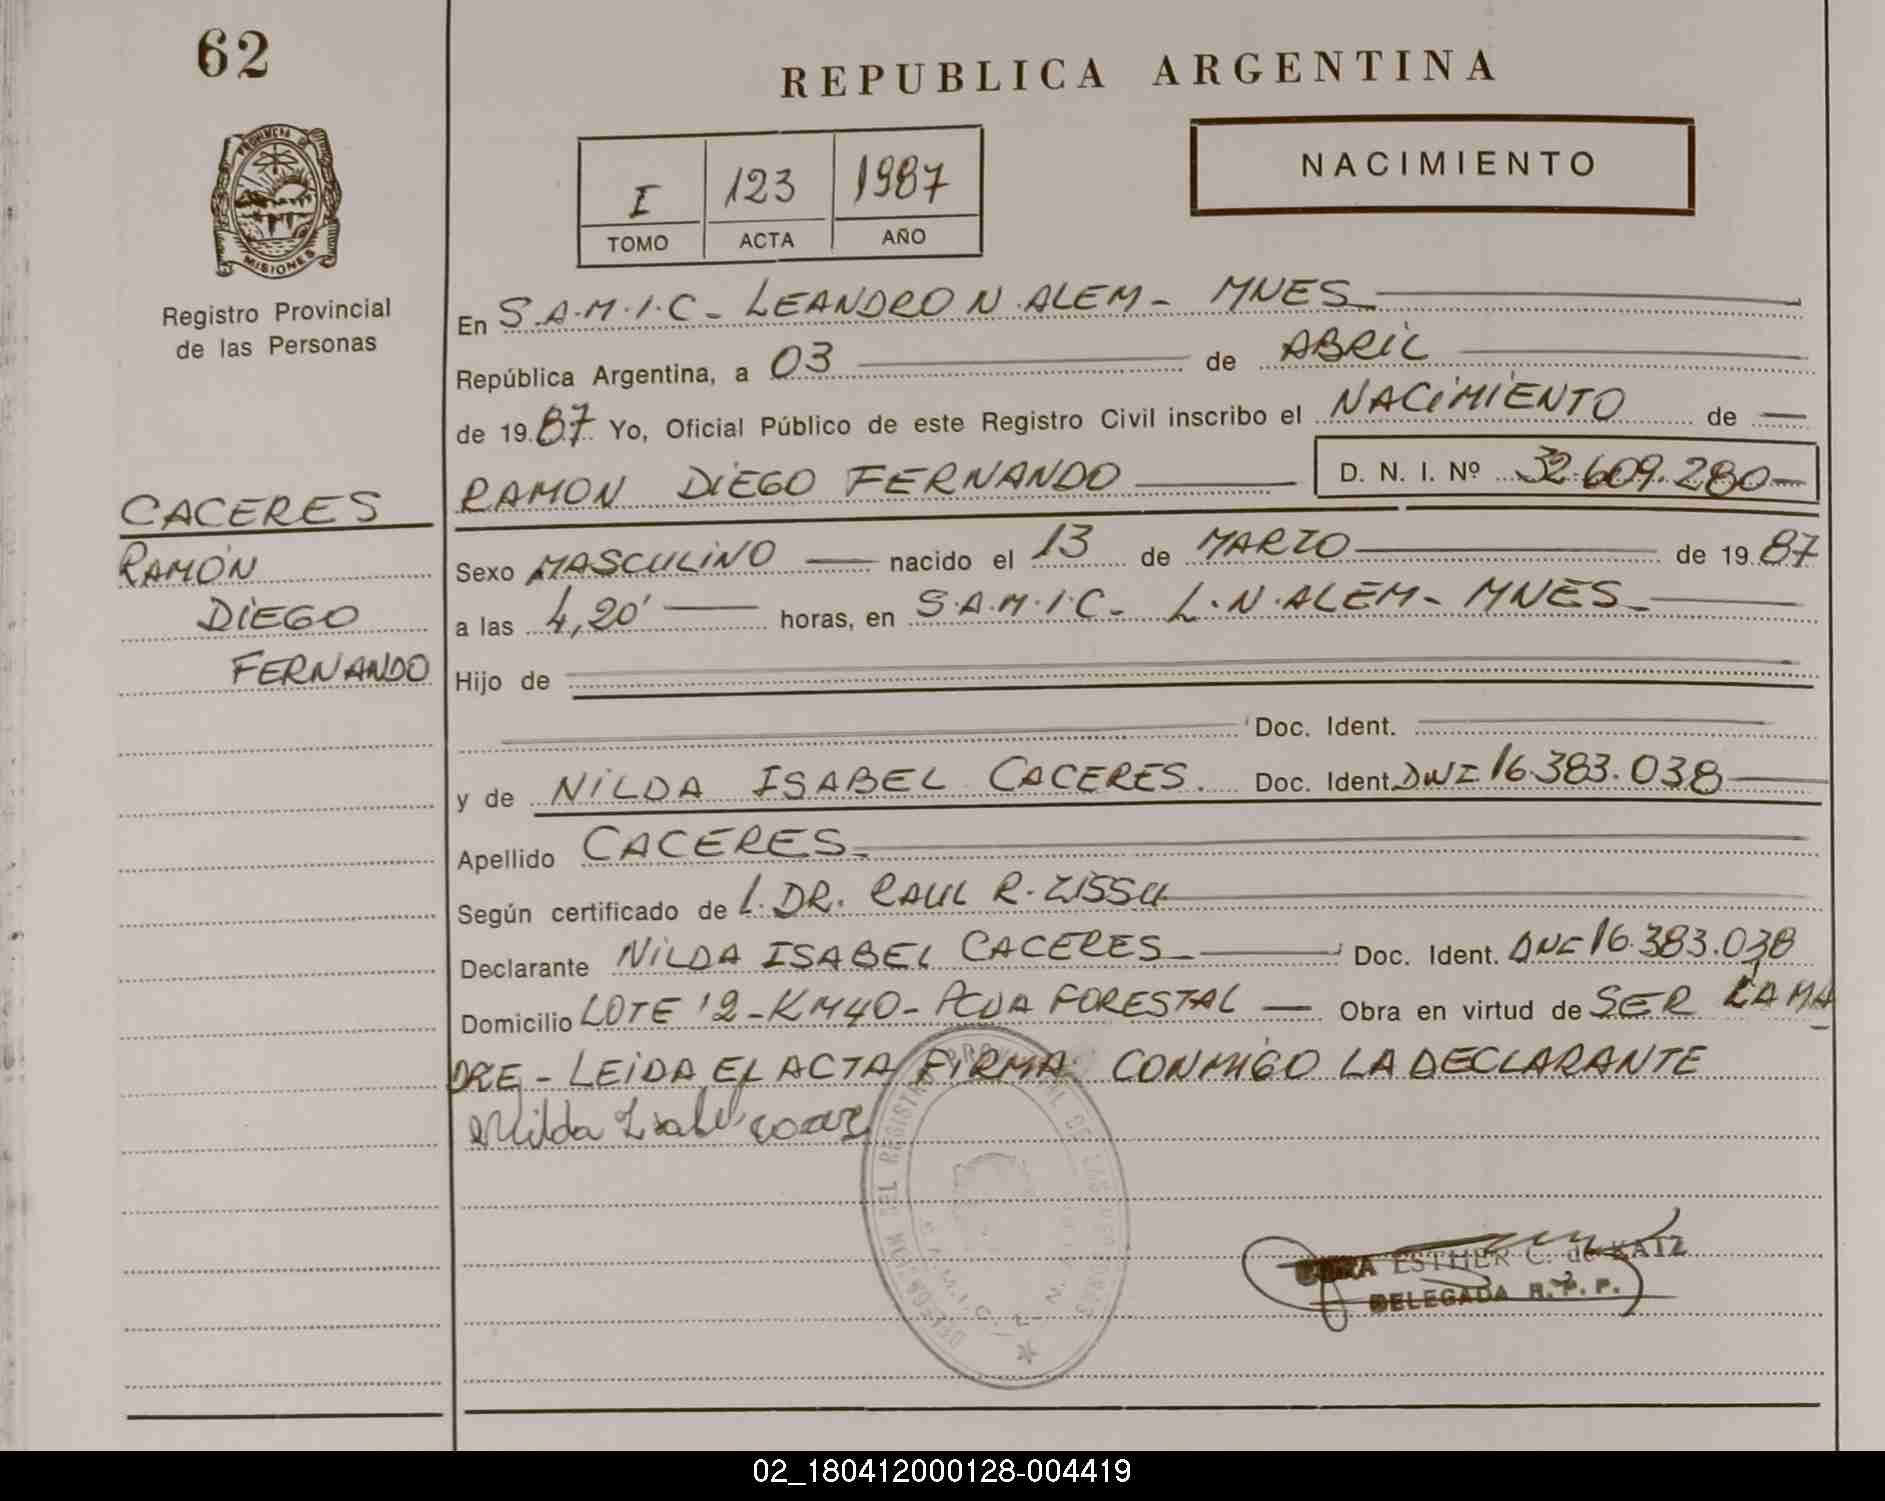 62
REPUBLICA ARGENTINA
PROVINCIA DE
MISIONES
Registro Provincial
de las Personas
I 123 1987
TOMO ACTA AÑO
NACIMIENTO
En S.A.M.I.C - LEANDRO N. ALEM - MNES
República Argentina, a 03 de ABRIL
de 1987 Yo, Oficial Público de este Registro Civil inscribo el NACIMIENTO de
RAMON DIEGO FERNANDO D. N. I. Nº 32.609.280
CACERES
RAMÓN
DIEGO
FERNANDO
Sexo MASCULINO nacido el 13 de MARZO de 1987
a las 4,20' horas, en S.A.M.I.C - L.N. ALEM - MNES
Hijo de
Doc. Ident.
y de NILDA ISABEL CACERES. Doc. Ident. DNI 16.383.038
Apellido CACERES
Según certificado de l. DR. RAUL R. ZISSU
Declarante NILDA ISABEL CACERES Doc. Ident. DNI 16.383.038
Domicilio LOTE 12 - KM 40 - PCUA FORESTAL Obra en virtud de SER LA MA
DRE - LEIDA EL ACTA FIRMA CONMIGO LA DECLARANTE
Nilda Isabel
ESTHER C. de KATZ
DELEGADA R. P. P.
02_180412000128-004419